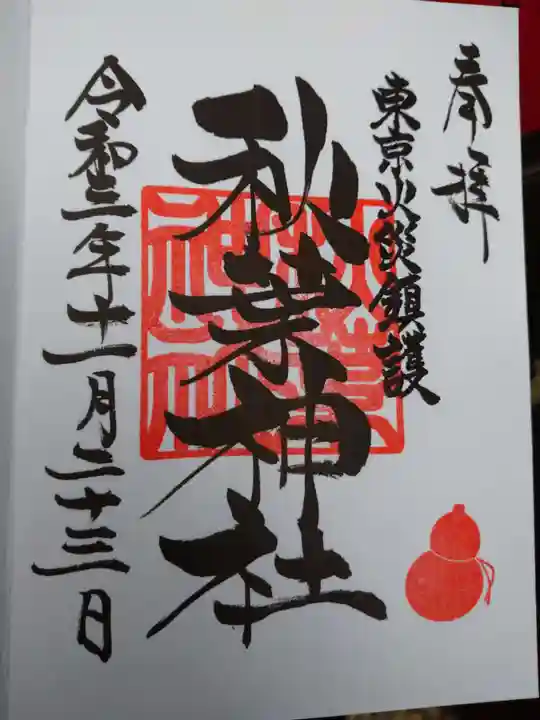 奉拝
東京火災鎮護
秋葉神社
秋葉神社
令和三年十一月二十三日